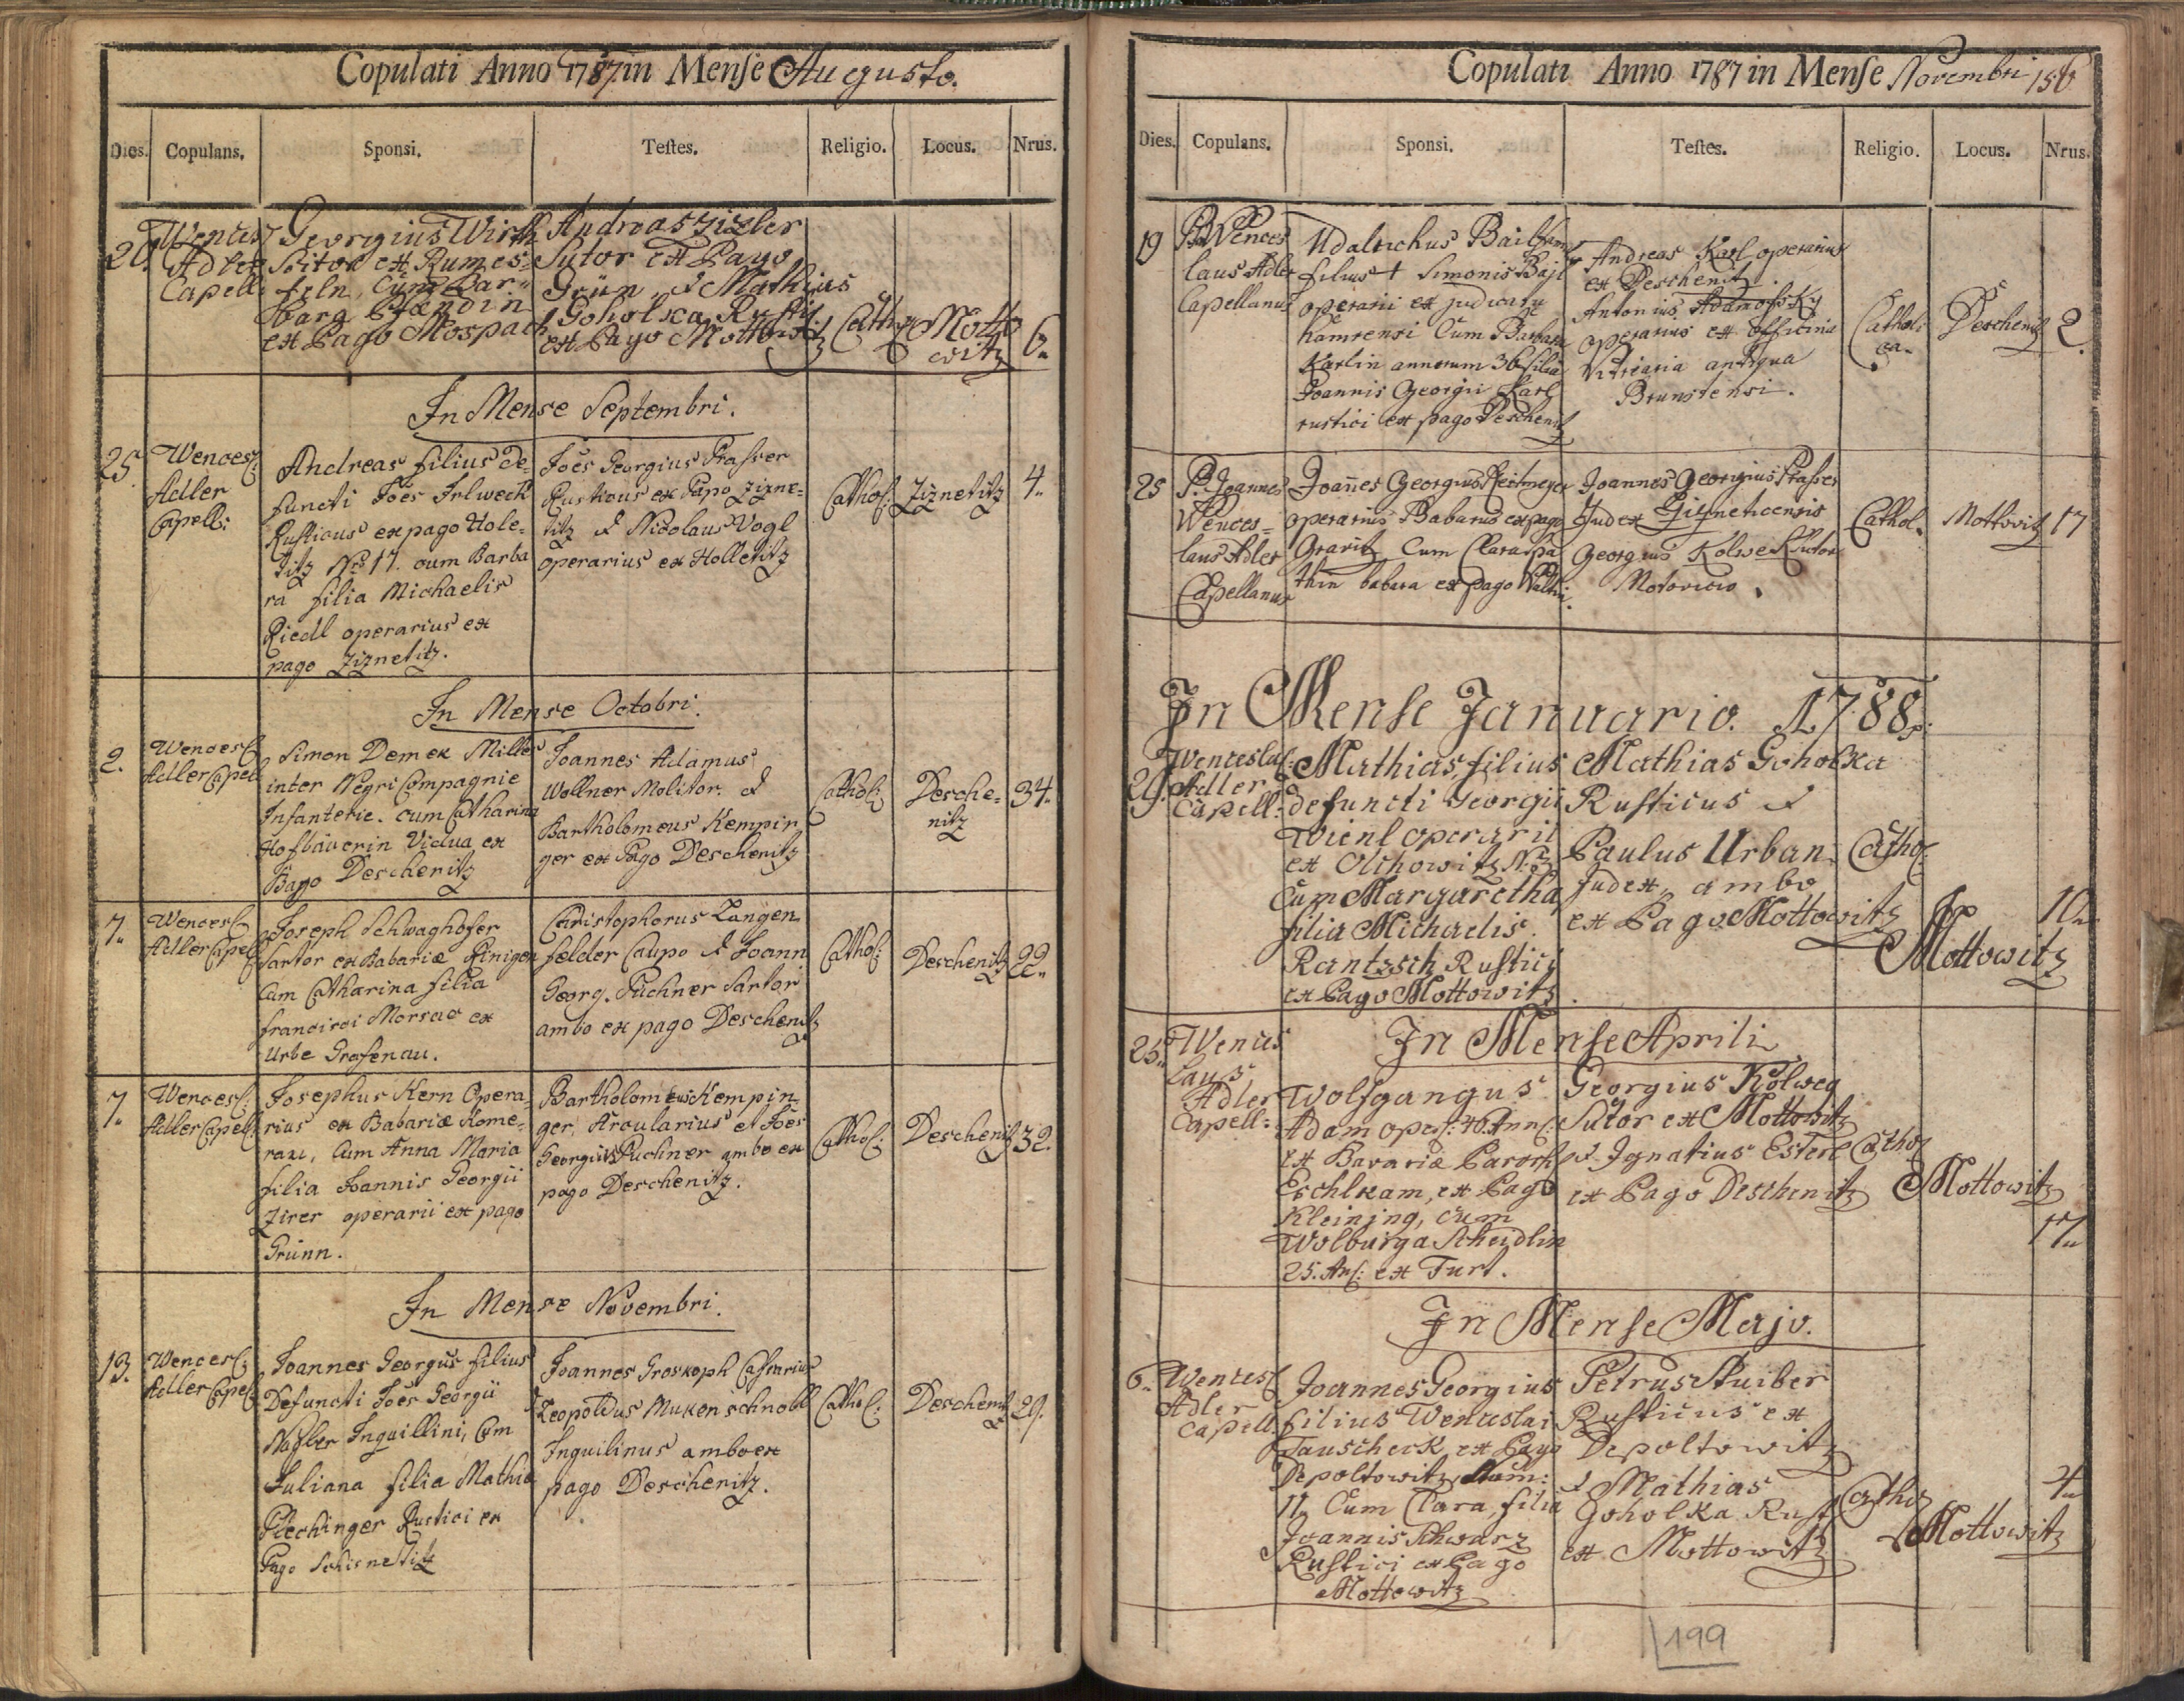 Copulati Anno 1787 in Mense Augusto.
Dies. Copulans. Sponsi. Testes. Religio. Locus. Nrus.
Adler
Capell:
Georgius Wirth
ex Pago Mospach
Andreas Zizler
Sutor ex Pago
Grün, & Mathias
Goholka Rusti:
ex Pago Mottowitz
Cath:
Motto
witz
6.
In Mense Septembri.
25.
Wencesl:
Adler
Capell:
Andreas filius de-
functi Joes Irlweck
Rusticus ex pago Hole-
titz Nro 17. cum Barba
ra filia Michaelis
Riedl operarius ex
pago Ziznetitz.
Joes Georgius Prasser
Rusticus ex Pago Zizne-
titz & Nicolaus Vogl
operarius ex Holletitz
Cathol: Ziznetitz 4.
In Mense Octobri.
2.
Wencesl:
Adler Capel:
Simon Demek Miller
inter Negri Compagnie
Infanterie. cum Catharina
Hofbäverin Vidua ex
Pago Deschenitz
Joannes Adamus
Wollner Molitor. &
Bartholomeus Kempin
ger ex Pago Deschenitz
Cathol:
Desche-
nitz
34.
7.
Wencesl:
Adler Capel:
Joseph Schwaghofer
Sartor ex Babariæ Rinigen
Cum Catharina filia
francisci Morsac ex
Urbe Grafenau.
Christophorus Langen
felder Caupo & Joann
Georg. Puchner Sartor
ambo ex pago Deschenitz
Cathol: Deschenitz 22.
7.
Wencesl:
Adler Capel:
Josephus Kern Opera-
rius ex Babariæ Kame-
raxi, Cum Anna Maria
filia Joannis Georgii
Zirer operarii ex pago
Grünn.
Bartholomeus Kempin-
ger, Arcularius et Joes
Georgius Puchner ambo ex
pago Deschenitz.
Cathol: Deschenitz 32.
In Mense Novembri.
13.
Wencesl:
Adler Capel:
Joannes Georgius filius
Defuncti Joes Georgii
Nassler Inquillini, Cum
Juliana filia Mathiæ
Plechinger Rustici ex
Pago Schisnetitz
Joannes Groskoph Casearius
Leopoldus Mukenschnabl
Inquilinus ambo ex
pago Deschenitz.
Cathol: Deschenitz 29.
Copulati Anno 1787 in Mense Novembri 156
Dies. Copulans. Sponsi. Testes. Religio. Locus. Nrus.
19
P. Wences
laus Adler
Capellanus
Udalrichus Bail
filius + Simonis Bajl
operarii ex judicatu
hamrensi Cum Barbara
Karlin annorum 36 filia
Joannis Georgii Karl
rustici ex pago Deschenitz
Andreas Karl operarius
ex Deschenitz.
Antonius Adamofsky
operarius ex officina
Vitriaria antiqua
Brunstensi.
Catholi
ca.
Deschenitz
2.
25
P. Joannes
Wences-
laus Adler
Capellanus
Joannes Georgius Reitmeyer
operarius Babarus ex pago
Grafitz, Cum Clara
thin babara ex pago
Joannes Georgius Prasser
Judex
Georgius Kolwek Sutor
Motovicio.
Cathol. Mottovitz 17
In Mense Januario. 1788.
29.
Wenceslai:
Adler
Capell:
Mathias, filius
defuncti Georgii
Wienl operarii
ex Olchowitz Nr.
Cum Margaretha
filia Michaelis.
Rantzsch Rustici
ex Pago Mottowitz
Mathias Goholka
Rusticus &
Paulus Urban.
Judex, ambo
ex Pago Mottowitz
Cathol:
Mottowitz
10.
In Mense Aprili
25.
Wences
laus
Adler
Capell:
Wolfgangus
Adam oper: 40. Ann:
ex Bavariæ Paroch
Eschlkam, ex Pago
Kleining, cum
Wolburga Scheidlin
25. An: ex Furt.
Georgius Kolweg
Sutor ex Mottowitz
& Ignatius Esterl
ex Pago Deschenitz
Cathol:
Mottowitz
17.
In Mense Majo.
6.
Wencesl:
Adler
Capell.
Joannes Georgius
filius Wenceslai
Tauscheck ex Pago
Depoltowitz Num:
11, Cum Clara, filia
Joannis Schwarz
Rustici ex Pago
Mottowitz
Petrus Stuiber
Rusticus ex
Depoltowitz
& Mathias
Goholka Rust:
ex Mottowitz
Cathol:
Mottowitz
4.
199